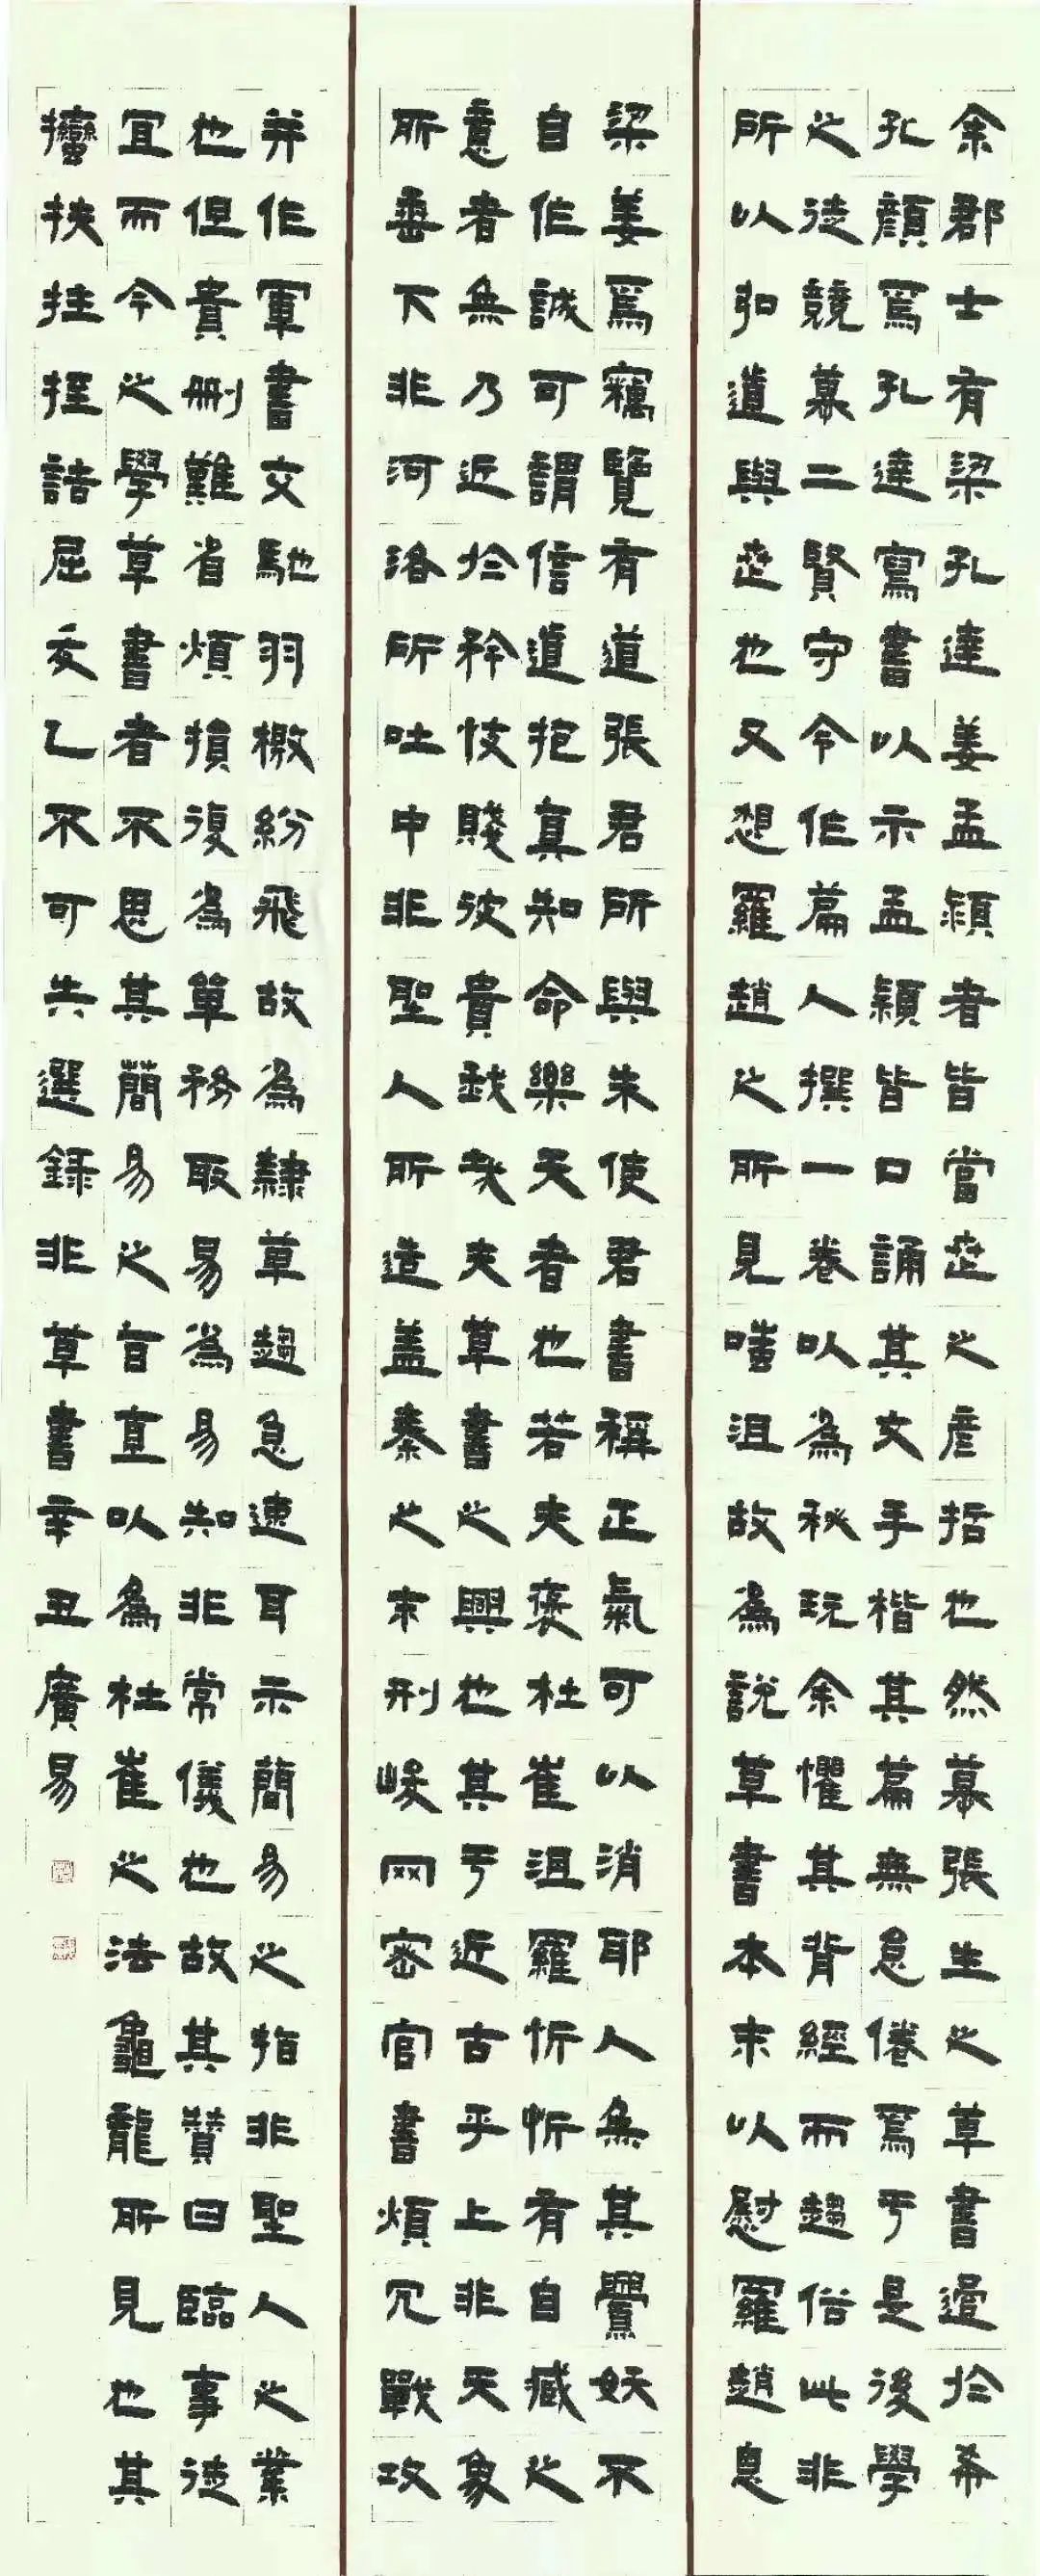 余郡士有梁孔達姜孟穎者皆當世之彥哲也然慕張生之草書過於希
孔顏焉孔達寫書以示孟穎皆口誦其文手楷其篇無怠倦焉于是後學
之徒競慕二賢守令作篇人撰一卷以為秘玩余懼其背經而趨俗此非
所以弘道興世也又想羅趙之所見嗤沮故為說草書本末以慰羅趙息
梁姜焉竊覽有道張君所與朱使君書稱正氣可以消邪人無其釁妖不
自作誠可謂信道抱真知命樂天者也若夫褒杜崔沮羅忻忻有自臧之
意者無乃近於矜忮賤彼貴我哉夫草書之興也其于近古乎上非天象
所垂下非河洛所吐中非聖人所造蓋秦之末刑峻網密官書煩冗戰攻
并作軍書交馳羽檄紛飛故為隸草趨急速耳示簡易之指非聖人之業
也但貴刪難省煩損復為單務取易為易知非常儀也故其贊曰臨事從
宜而今之學草書者不思其簡易之旨直以為杜崔之法龜龍所見也其
㩳扶拄挃詰屈叐乙不可失選錄非草書辛丑廣易